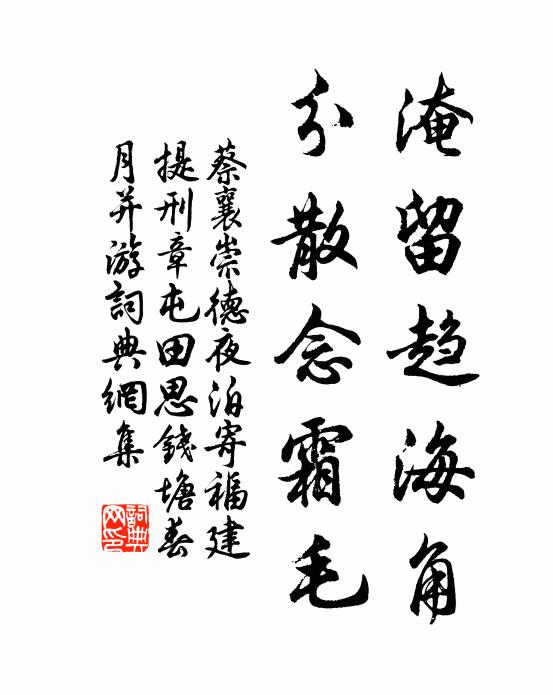 淹留趋海角
分散念霜毛
蔡襄崇德夜泊寄福建
提刑章屯田思錢塘春
月并游詞典網集
詞典网印